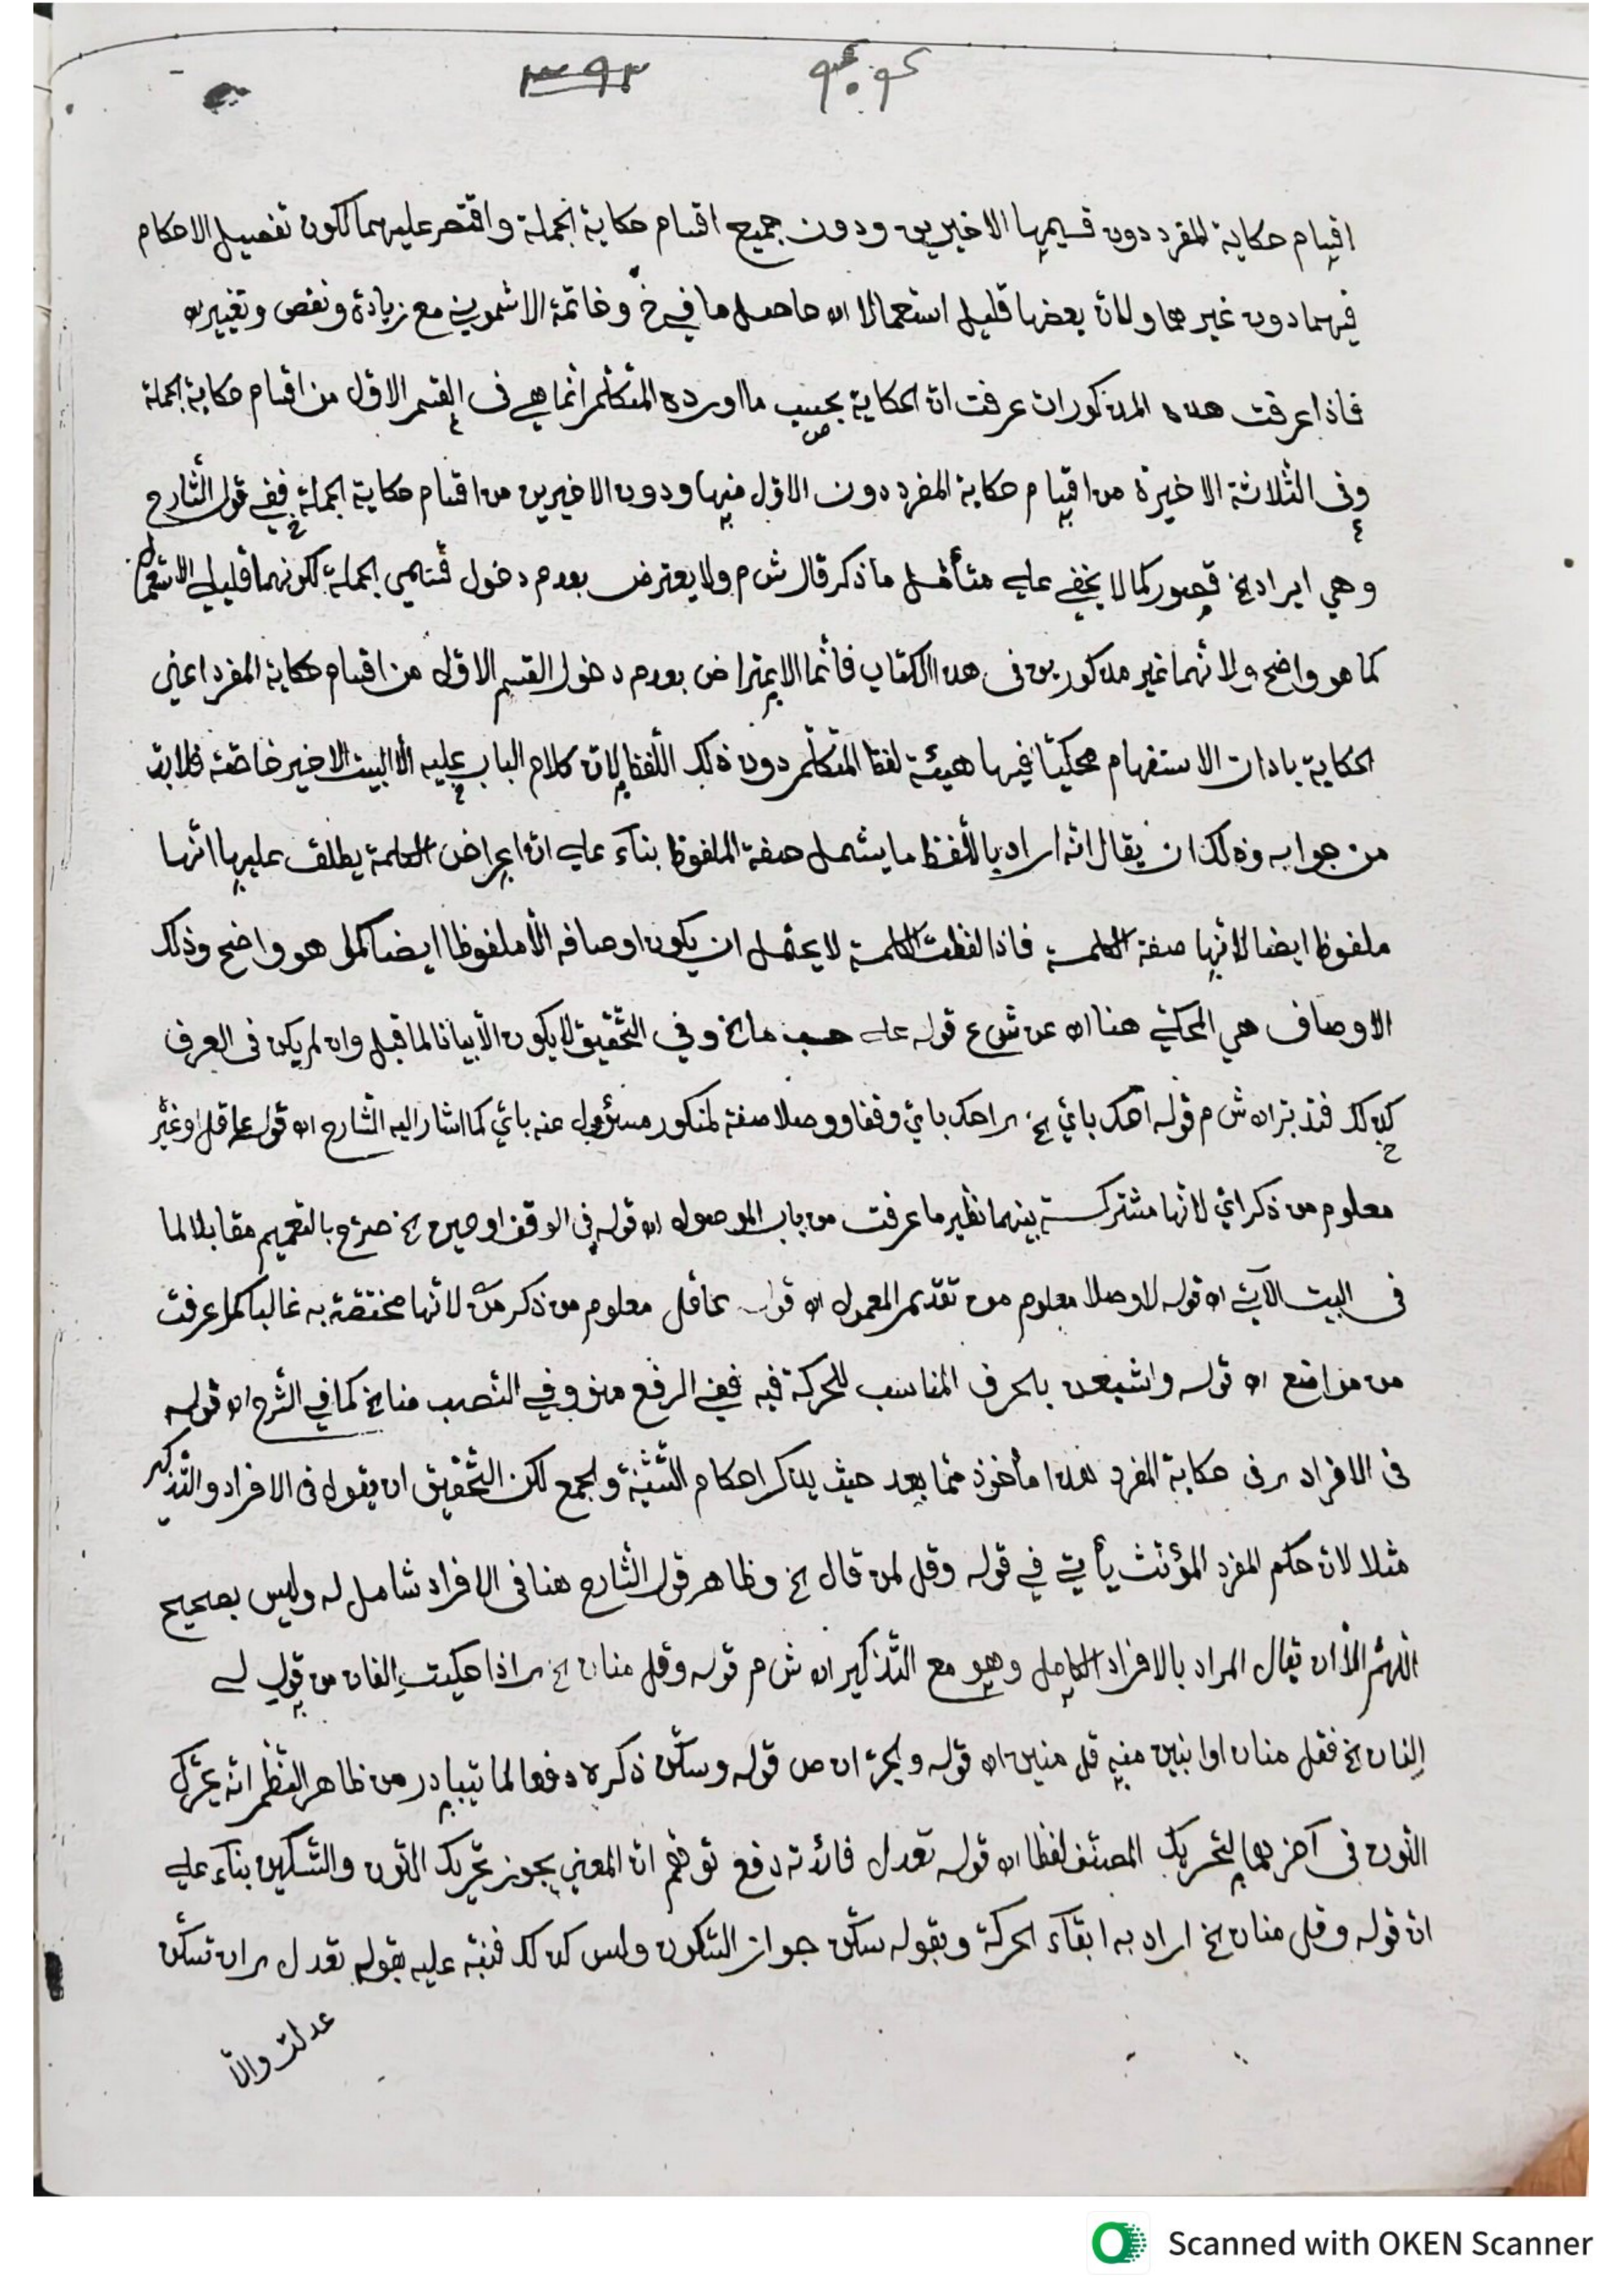 ٣٩٢
اقسام حكاية المفرد دون قسيميها الاخيرين ودون جميع اقسام حكاية الجملة واقتصر عليهما لكون تفصيل الاحكام
فيهما دون غيرهما ولان بعضها قليل استعمالا اه حاصل ما في خ وخاتمة الاشموني مع زيادة ونقص وتغيير اه
فاذا عرفت هذه المذكورات عرفت ان الحكاية بحسب ما اورده المتكلم انما هي فى القسم الاول من اقسام حكاية الجملة
وفى الثلاثة الاخيرة من اقسام حكاية المفرد دون الاول منها ودون الاخيرين من اقسام حكاية الجملة ففي قول الشارح
وهي ايراد الخ قصور كما لا يخفى على متأمل ما ذكر قال ش م ولا يعترض بعدم دخول قسمي الجملة لكونهما قليلي الاستعمال
كما هو واضح ولانهما غير مذكورين فى هذا الكتاب فانما الاعتراض بعدم دخول القسم الاول من اقسام حكاية المفرد اعني
الحكاية بادات الاستفهام محكيّا فيها هيئة لفظ المتكلم دون ذلك اللفظ لان كلام الباب عليه الا البيت الاخير خاصّة فلا بدّ
من جوابه وذلك ان يقال انه اراد باللفظ ما يشمل صفة الملفوظ بناء على ان اعراض الكلمة يطلق عليها انها
ملفوظ ايضا لانها صفة الكلمة فاذا لفظت الكلمة لا يحتمل ان يكون اوصافه الا ملفوظا ايضا كما هو واضح وذلك
الاوصاف هي المحكي هنا اه عن ش ع قوله على حسب ما الخ وفي التحقيق لا يكون الا بيانا لما قبل وان لم يكن فى العرف
كذلك فتدبر اه ش م قوله احك باي الخ ‍ احك باي وقفا ووصلا صفة لمنكور مسؤول عنه باي كما اشار اليه الشارح اه قوله عاقل او غير
معلوم من ذكر اي لانها مشتركة بينهما نظير ما عرفت من باب الموصول اه قوله في الوقف او حين الخ صرح بالتعميم مقابلا لما
فى البيت الآتي اه قوله لا وصلا معلوم من تقديم المعمول اه قوله عاقل معلوم من ذكر من لانها مختصّة به غالبا كما عرفت
من اه قوله واشبعن بالحرف المناسب للحركة فيه ففي الرفع منو وفي النصب منا الخ كما في الشرح اه قوله
فى الافراد ‍ فى حكاية المفرد هذا مأخوذ مما بعد حيث يذكر احكام التثنية والجمع لكن التحقيق ان يقول فى الافراد والتذكير
مثلا لان حكم المفرد المؤنث يأتي في قوله وقل لمن قال الخ وظاهر قول الشارح هنا فى الافراد شامل له وليس بصحيح
اللهم الا ان يقال المراد بالافراد الكامل وهو مع التذكير اه ش م قوله وقل منان الخ ‍ اذا حكيت الفان من قول لي
الفان الخ فقل منان او ابنين منه قل منين اه قوله والجر اه ص قوله وسكن ذكره دفعا لما يتبادر من ظاهر النظم انه يحرّك
النون فى آخرهما لتحريك المصنف لفظا اه قوله تعدل فائدته دفع توهّم ان المعنى يجوز تحريك النون والتسكين بناء على
ان قوله وقل منان الخ اراد به ابقاء الحركة وبقوله سكّن جواز السكون وليس كذلك فنبّه عليه بقوله تعدل ‍ ان تسكّن
عدلت والا
Scanned with OKEN Scanner